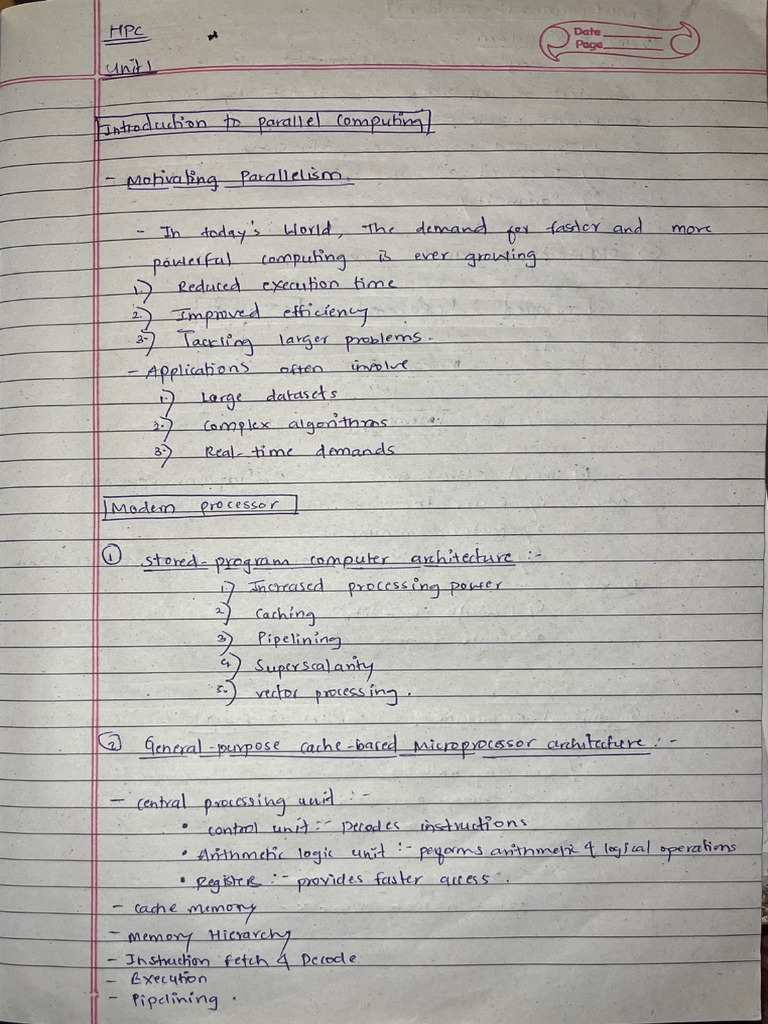 HPC
Date
Page
Unit 1
Introduction to parallel computing
- Motivating Parallelism.
- In today's World, The demand for faster and more
powerful computing is ever growing
1.) Reduced execution time
2.) Improved efficiency
3.) Tackling larger problems.
- Applications often involve
1.) Large datasets
2.) Complex algorithms
3.) Real-time demands
Modern processor
① Stored-program computer architecture :-
1.) Increased processing power
2.) Caching
3.) Pipelining
4.) Superscalarity
5.) vector processing.
② General-purpose cache-based Microprocessor architecture :-
- central processing unit :-
• control unit :- Decodes instructions
• Arithmetic logic unit :- performs arithmetic & logical operations
• Registers :- provides faster access.
- cache memory
- Memory Hierarchy
- Instruction fetch & Decode
- Execution
- Pipelining.